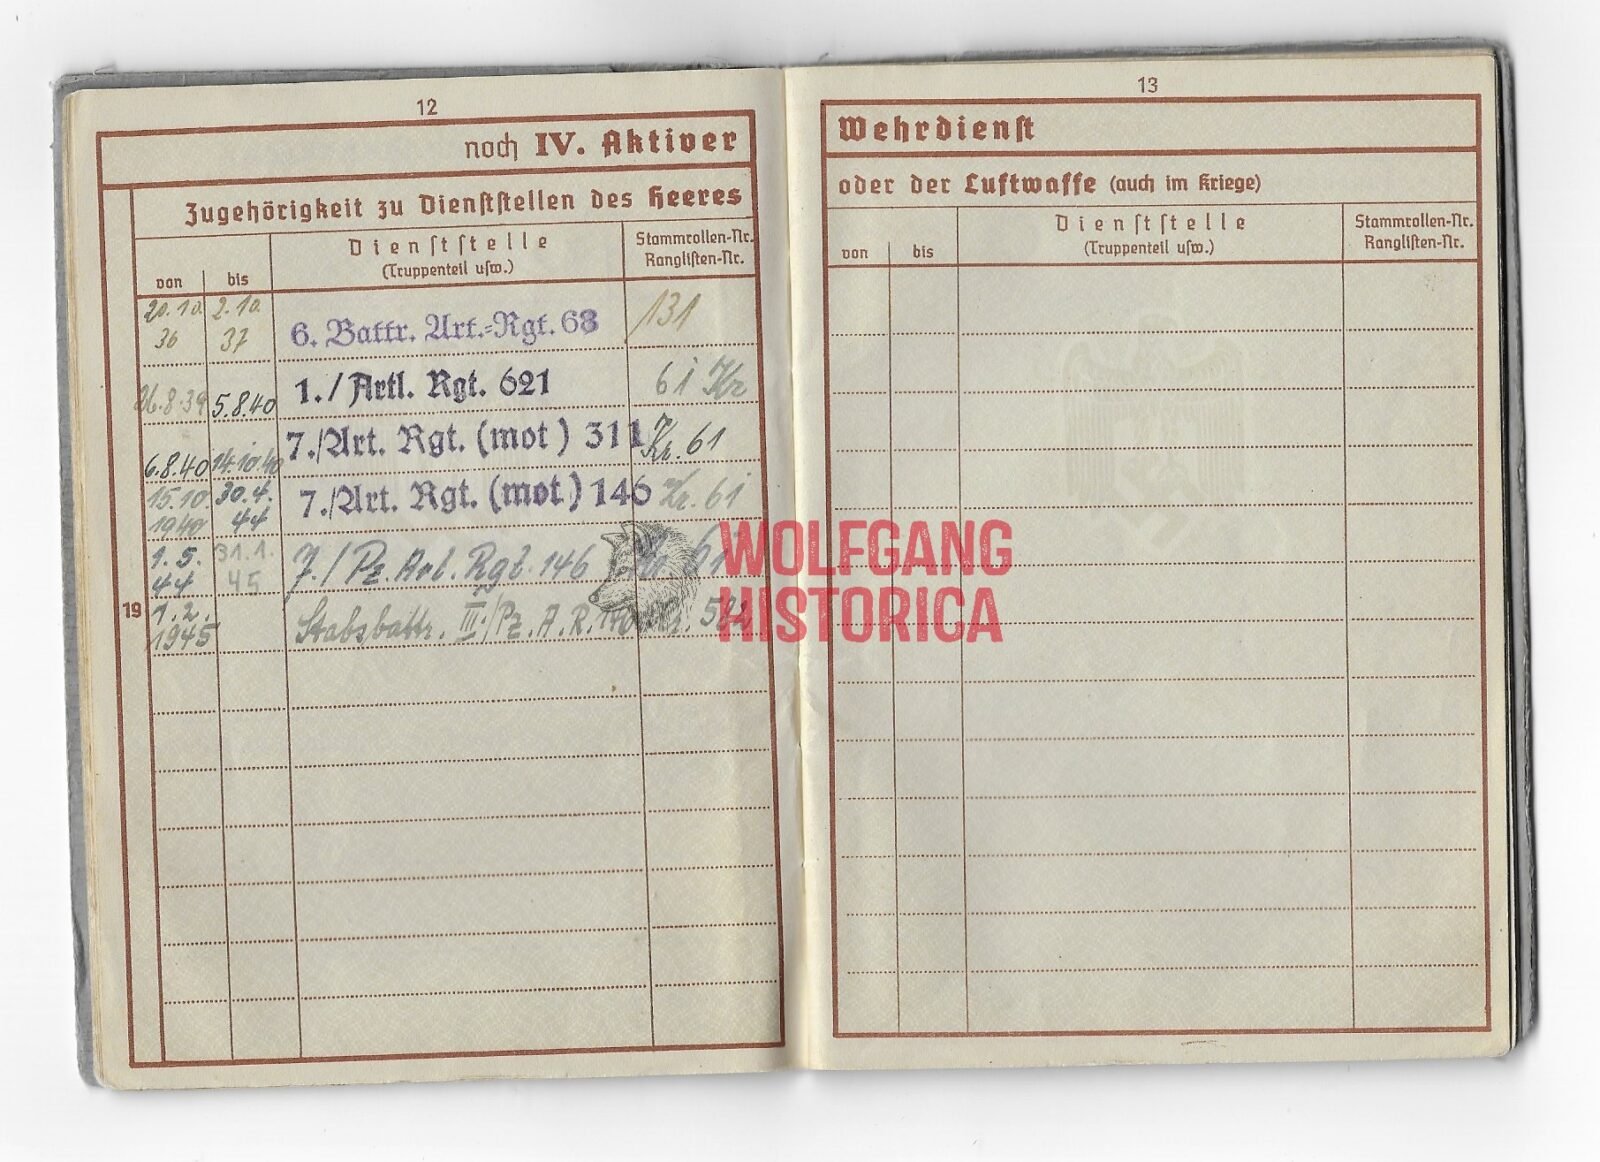 12
noch IV. Aktiver
Zugehörigkeit zu Dienststellen des Heeres
von
bis
Dienststelle
(Truppenteil usw.)
Stammrollen-Nr.
Ranglisten-Nr.
20.10. 36
2.10. 37
6. Battr. Art.-Rgt. 68
131
26.8.39
5.8.40
1./ Artl. Rgt. 621
61 Kr
6.8.40
14.10.40
7./Art. Rgt. (mot) 311
Kr. 61
15.10. 1940
30.4. 44
7./Art. Rgt. (mot) 146
Kr. 61
1.5. 44
31.1. 45
7./Pz. Art. Rgt. 146
61
19
1.2. 1945
Stabsbattr. III./Pz. A. R. 146
582
13
Wehrdienst
oder der Luftwaffe (auch im Kriege)
von
bis
Dienststelle
(Truppenteil usw.)
Stammrollen-Nr.
Ranglisten-Nr.
WOLFGANG
HISTORICA